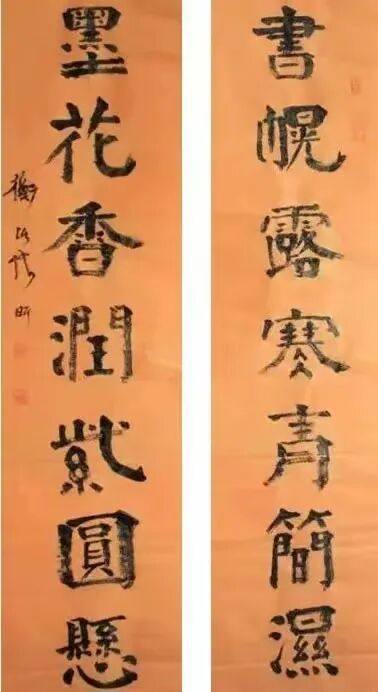 書幌露寒青簡濕
墨花香潤紫圓懸